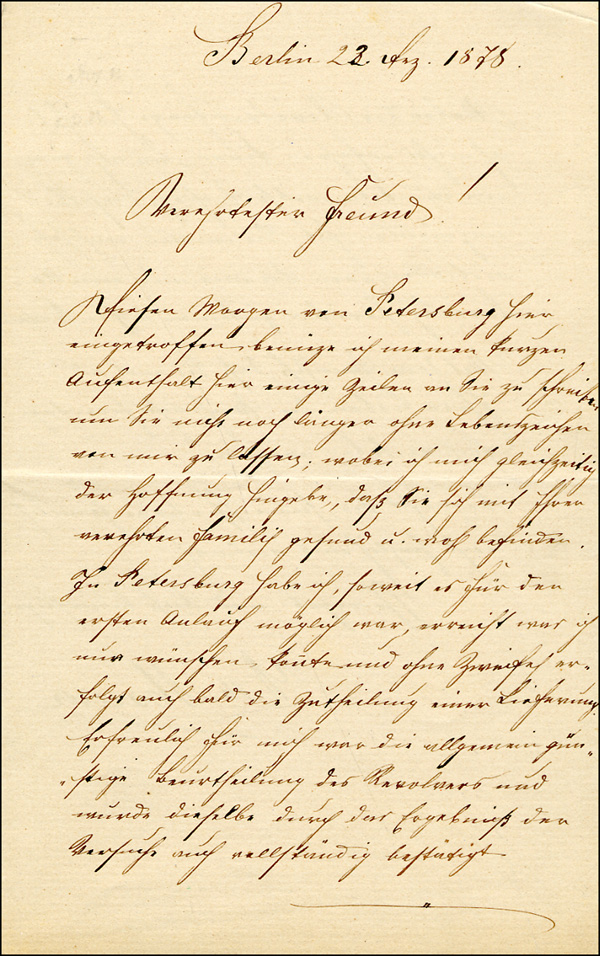 Berlin 22 Dez. 1878.
Verehrtester Freund!
Diesen Morgen von Petersburg hier
eingetroffen, benuze ich meinen kurzen
Aufenthalt hier einige Zeilen an Sie zu schreiben
um Sie nicht noch länger ohne Lebenszeichen
von mir zu lassen; wobei ich mich gleichzeitig
der Hoffnung hingebe, daß Sie sich mit Ihrer
verehrten Familie gesund u. wohl befinden.
In Petersburg habe ich, soweit es für den
ersten Anlauf möglich war, erreicht was ich
nur wünschen konnte und ohne Zweifel er-
folgt auch bald die Zutheilung einer Lieferung.
Erfreulich für mich war die allgemein gün-
stige Beurtheilung des Revolvers und
wurde dieselbe durch das Ergebniß der
Versuche auch vollständig bestätigt